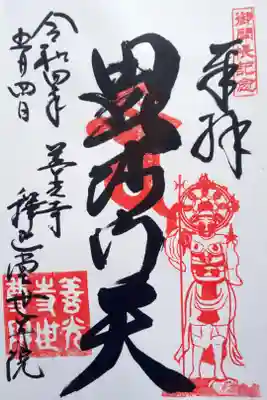 御開帳記念
奉拝
毘沙門天
令和四年
五月四日
善光寺
釈迦堂世尊院
善光
寺世
尊院